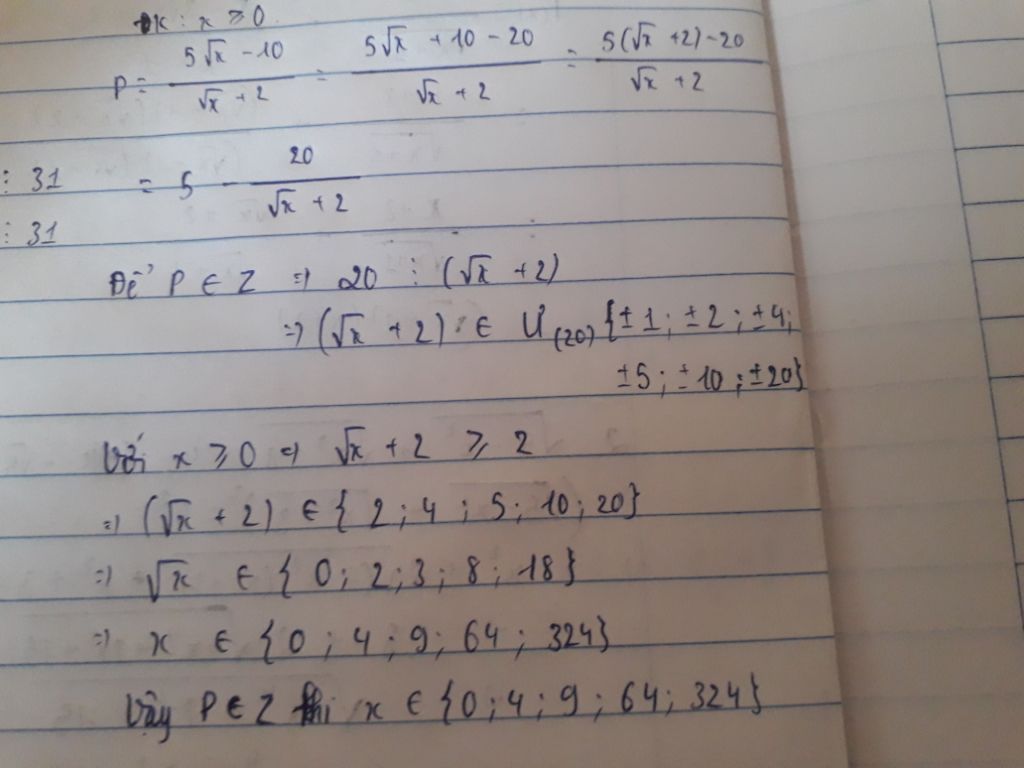 ĐK : x ≥ 0
P = (5√x - 10)/(√x + 2) = (5√x + 10 - 20)/(√x + 2) = (5(√x + 2) - 20)/(√x + 2)
⋮ 31 = 5 - 20/(√x + 2)
⋮ 31
Để P ∈ Z => 20 ⋮ (√x + 2)
=> (√x + 2) ∈ Ư(20) {±1 ; ±2 ; ±4;
±5 ; ±10 ; ±20}
Với x ≥ 0 => √x + 2 ≥ 2
=> (√x + 2) ∈ { 2 ; 4 ; 5 ; 10 ; 20}
=> √x ∈ { 0 ; 2 ; 3 ; 8 ; 18}
=> x ∈ {0 ; 4 ; 9 ; 64 ; 324}
Vậy P ∈ Z thì x ∈ {0 ; 4 ; 9 ; 64 ; 324}